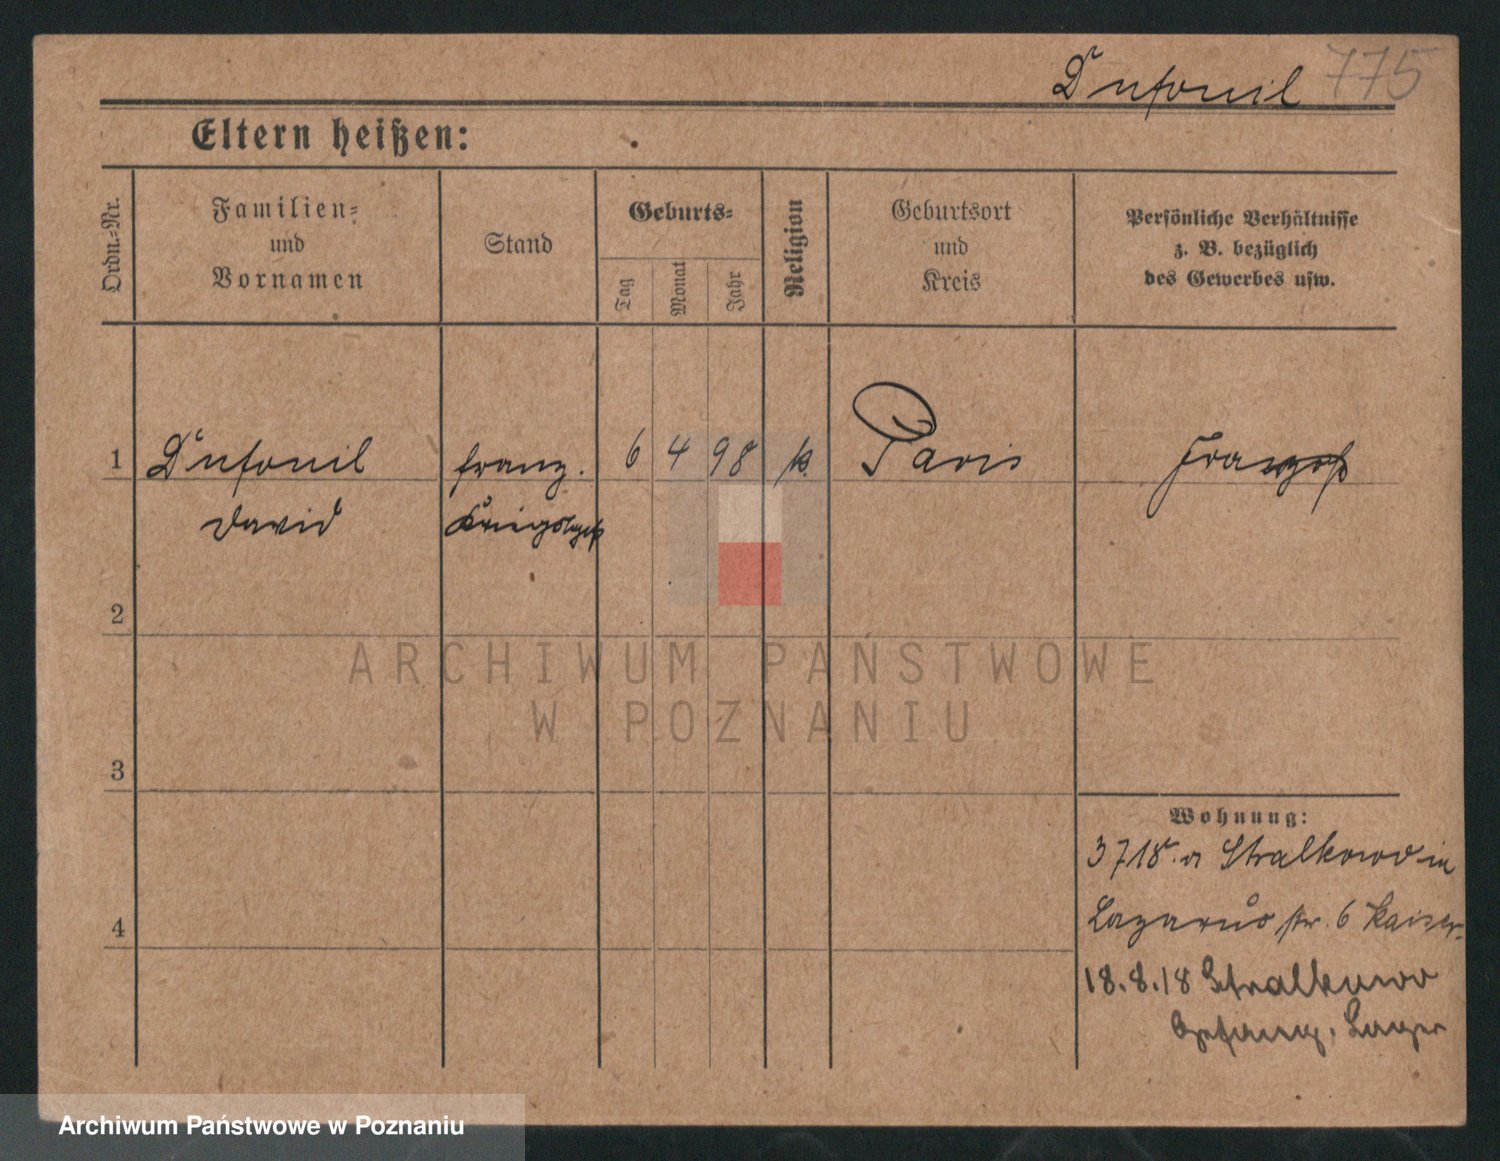 Dufouil 775
Eltern heißen:
Ordn.-Nr.
Familien-
und
Vornamen
Stand
Geburts-
Tag
Monat
Jahr
Religion
Geburtsort
und
Kreis
Persönliche Verhältnisse
z. B. bezüglich
des Gewerbes usw.
1 Dufouil franz. 6 4 98 k. Paris Franzose
David Kriegsgef
2
ARCHIWUM PAŃSTWOWE
W POZNANIU
3
Wohnung:
3718. a Stralkowo in
Lazarus str. 6 Kaiser-
4
18.8.18 Stralkowo
Gefang. Lager
Archiwum Państwowe w Poznaniu